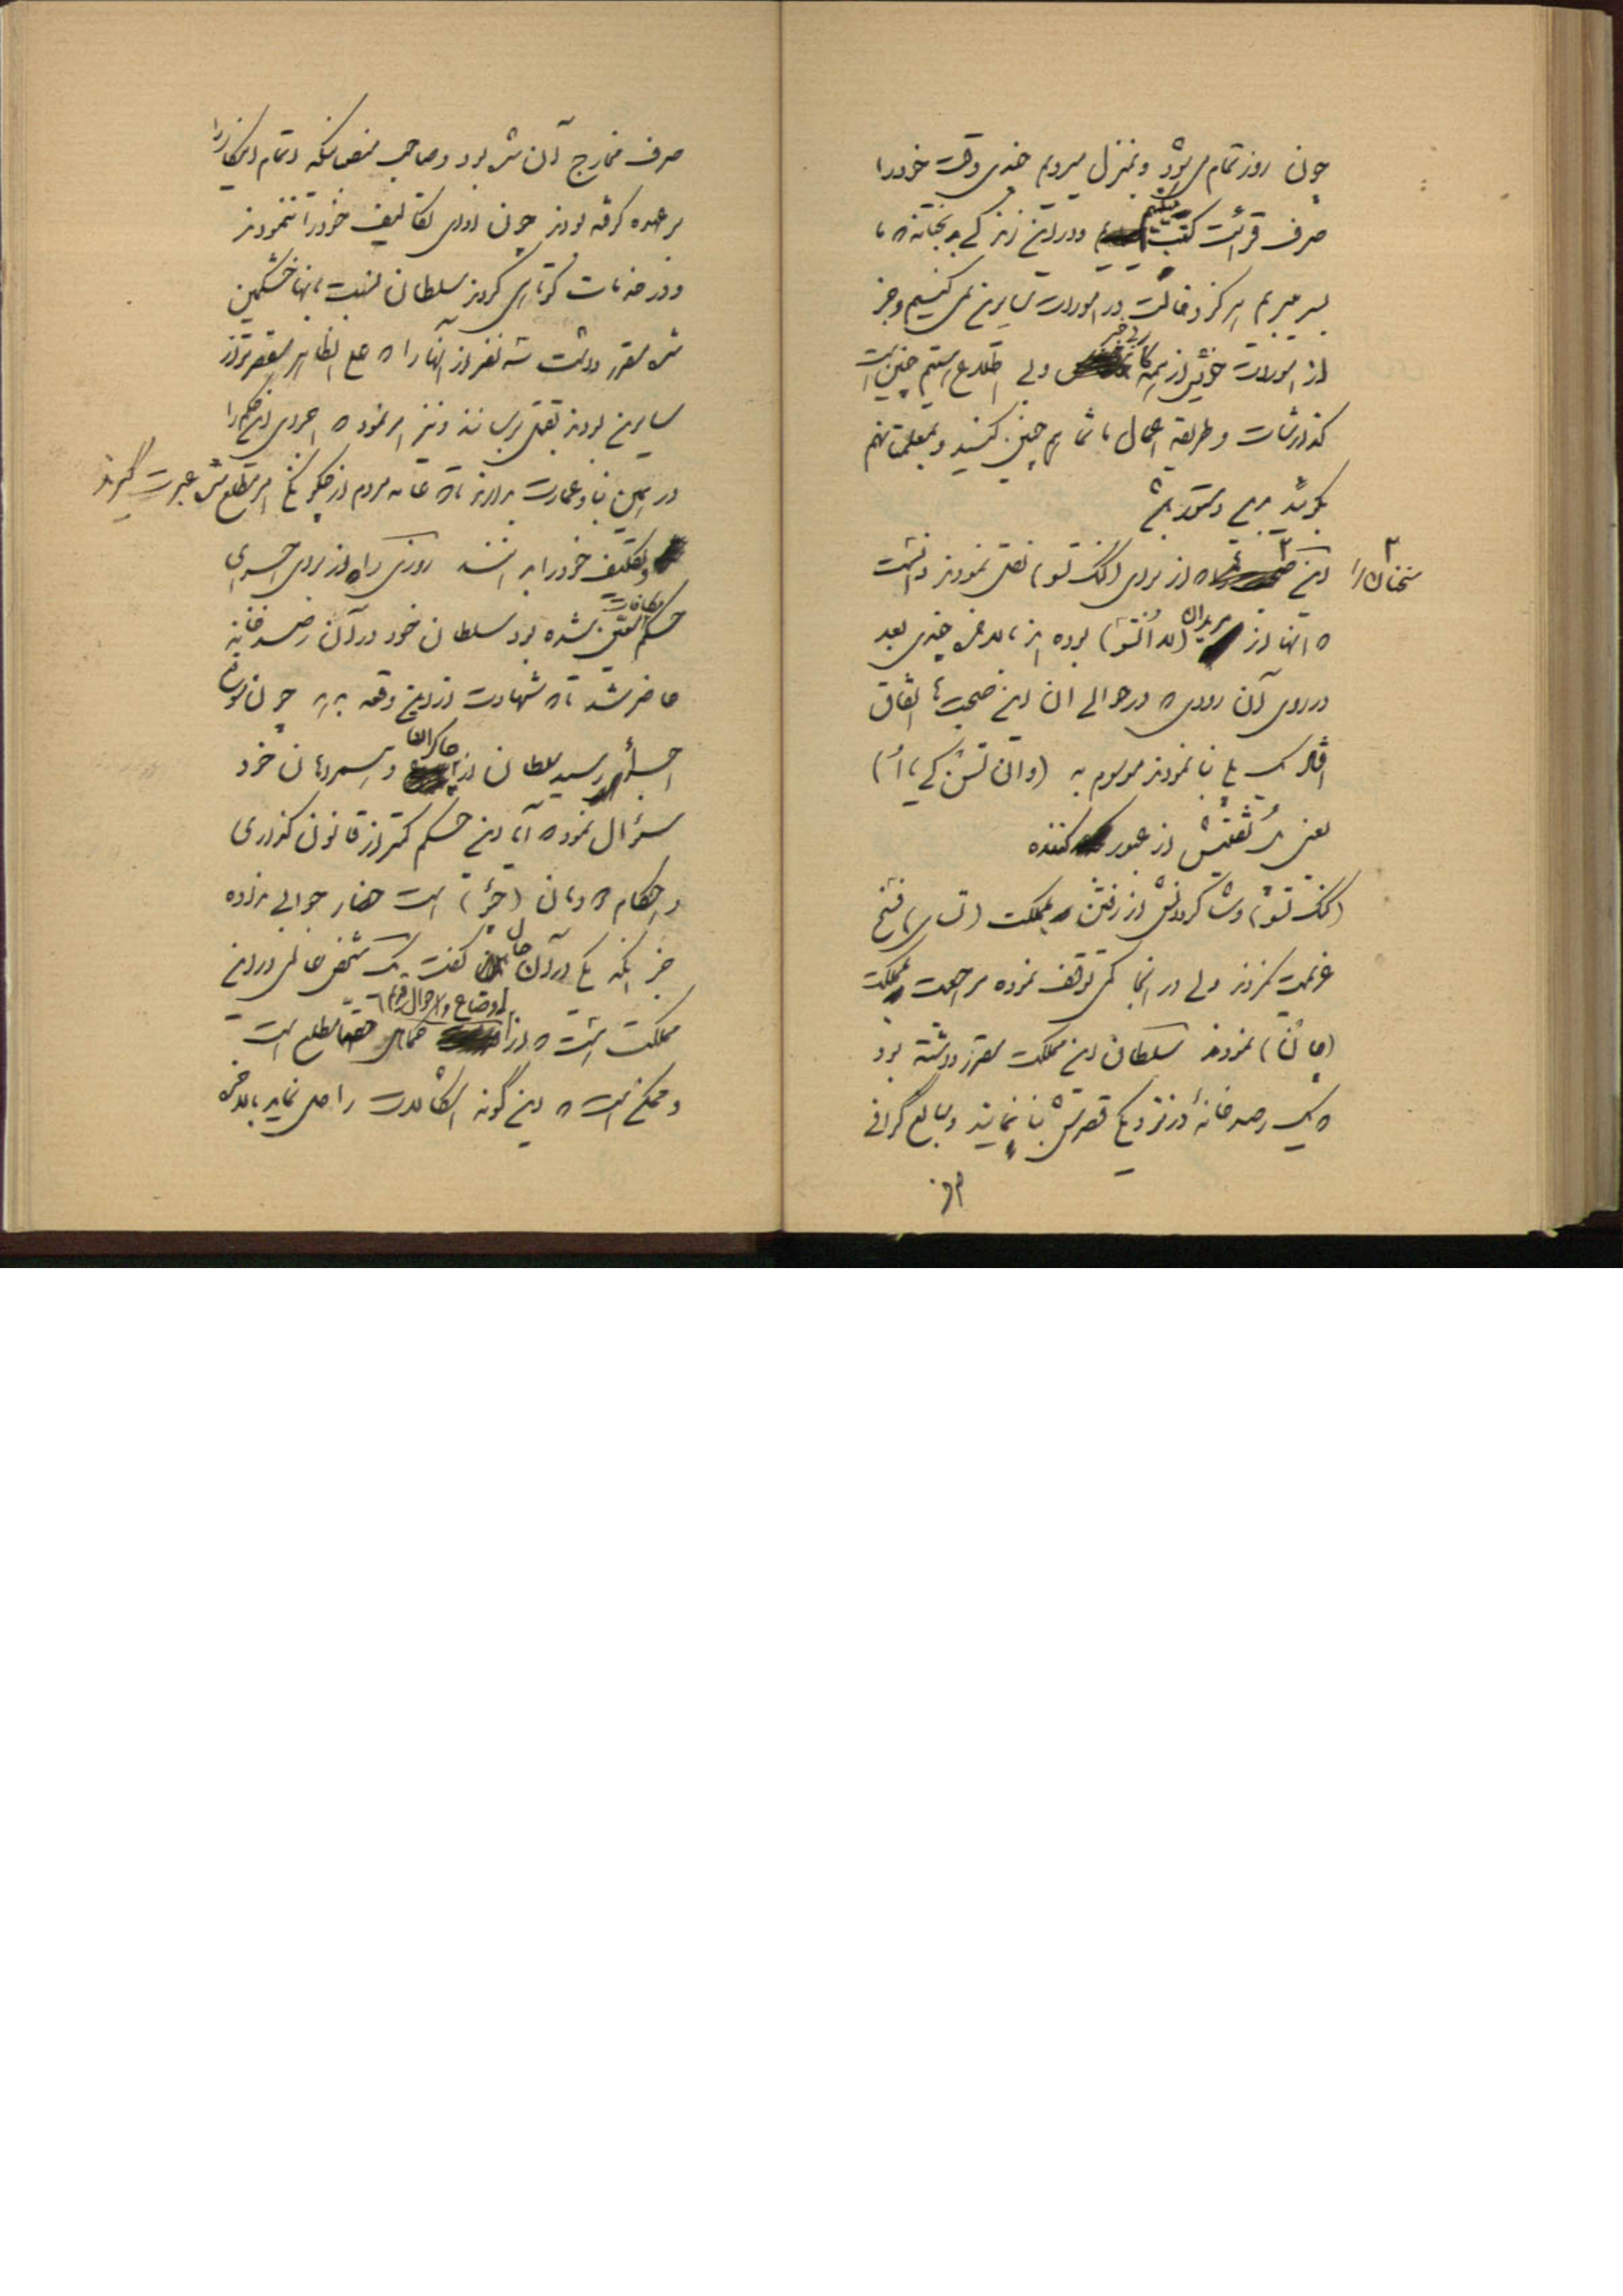 چون روز تمام می‌شود و بمنزل میرویم چندی وقت خود را
صرف قرائت کتب میکنیم و در این زندگی بی‌خیانه که ما
بسر میبریم هرگز دخالت در امورات سایرین نمی‌کنیم و جز
از امورات خویش از همه کار بی‌خبر ولی اطلاع هستیم چنین است
گذارشات و طریقه اعمال ما شما هم چنین کنید و بمعلمتان هم
بگوئید بهمین دستور باشد
سخنان را
این که از برای (کنگ تسو) نقل نمودند دانست
که آنها از مریدان (لااُتسو) بوده‌اند بالاخره چندی بعد
در روی آن رودی که در حوالی آن این صحبت‌ها اتفاق
افتاد یک پلی بنا نمودند موسوم به (وان تسن کی یااُ)
یعنی پُل تفتیش از عبور کننده
(کنگ تسو) و شاگردانش از رفتن بمملکت (تسای) فسخ
عزیمت کردند ولی در آنجا کمی توقف نموده مراجعت بمملکت
(چانگ) نمودند سلطان این مملکت مقرر داشته بود
که یک رصدخانهٔ در نزدیکی قصرش بنا نمایند و مبالغ گزافی
صرف مخارج آن شده بود و صاحب منصبانیکه اتمام اینکار را
بر عهده گرفته بودند چون ادای تکالیف خود را ننمودند
و در خدمات کوتاهی کردند سلطان نسبت بآنها خشمگین
شده مقرر داشت سه نفر از آنها را که علی الظاهر مقصرتر از
سایرین بودند بقتل برسانند و نیز امر نمود که اجرای این حکم را
در همین بنا و عمارت بدارند تا که عامه مردم از چگونگی امر مطلع شده عبرت گیرند
و تکلیف خود را بدانند روزی را که از برای اجرای
حکم مکافات معین شده بود سلطان خود در آن رصدخانه
حاضر شد تا که شهادت از این وقعه بدهد چون نوبت
اجرا رسید سلطان از چاکران و سرداران خود
سؤال نمود که آیا این حکم کمتر از قانون گذاری
و احکام خاندان (جُو) است حضار جوابی ندادند
جز اینکه یکی در آن میان گفت یک شخص عالمی در این
مملکت است که از اوضاع و احوال قدیم تماماً حقیقتاً مطلع است
و ممکن است که این گونه اشکالات را حل نماید بالاخره